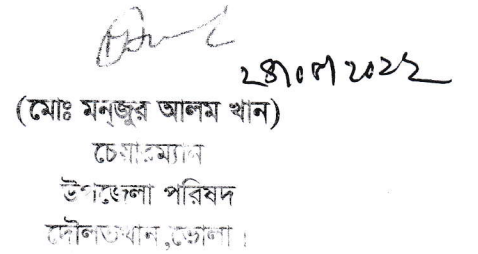 ২৪/০৫/২০২২
(মোঃ মনজুর আলম খান)
চেয়ারম্যান
উপজেলা পরিষদ
দৌলতখান,ভোলা।